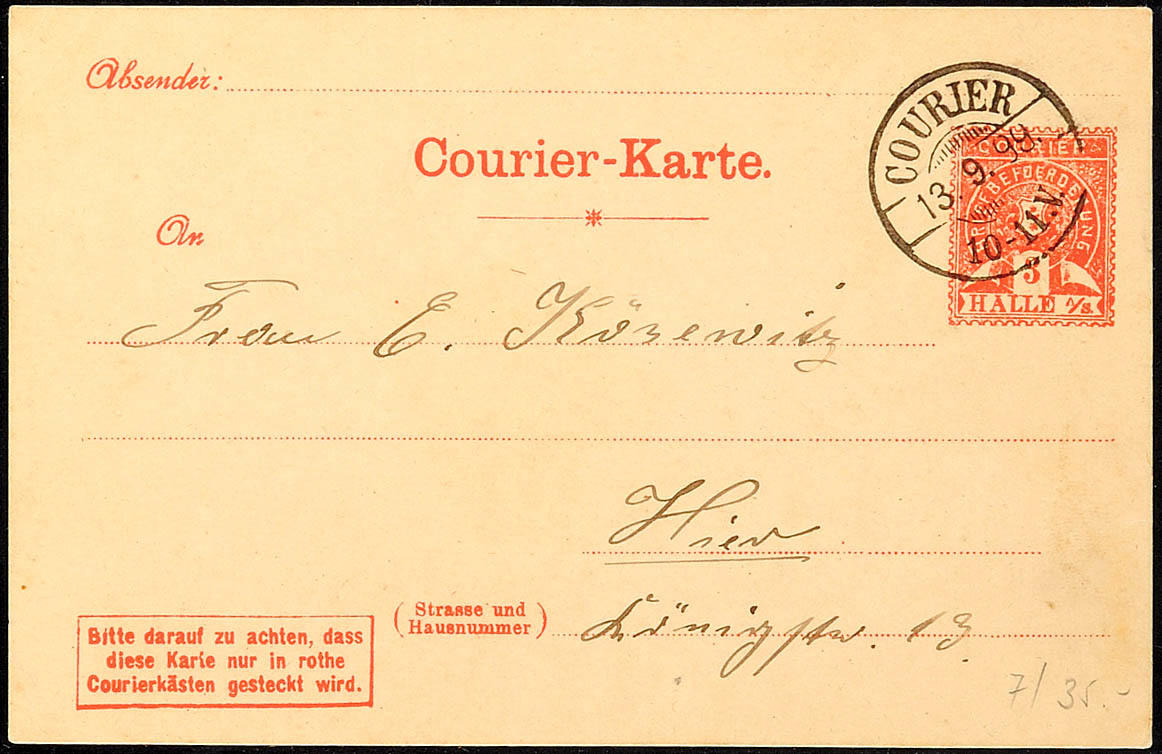 Absender:
Courier-Karte.
COURIER
13. 9. 99.
10-11.V.
COURIER
BRIEFBEFOERDERUNG
3
HALLE A/S.
An
Frau E. Körewitz
Hier
(Strasse und
Hausnummer)
Königstr. 13.
Bitte darauf zu achten, dass
diese Karte nur in rothe
Courierkästen gesteckt wird.
7/35.-